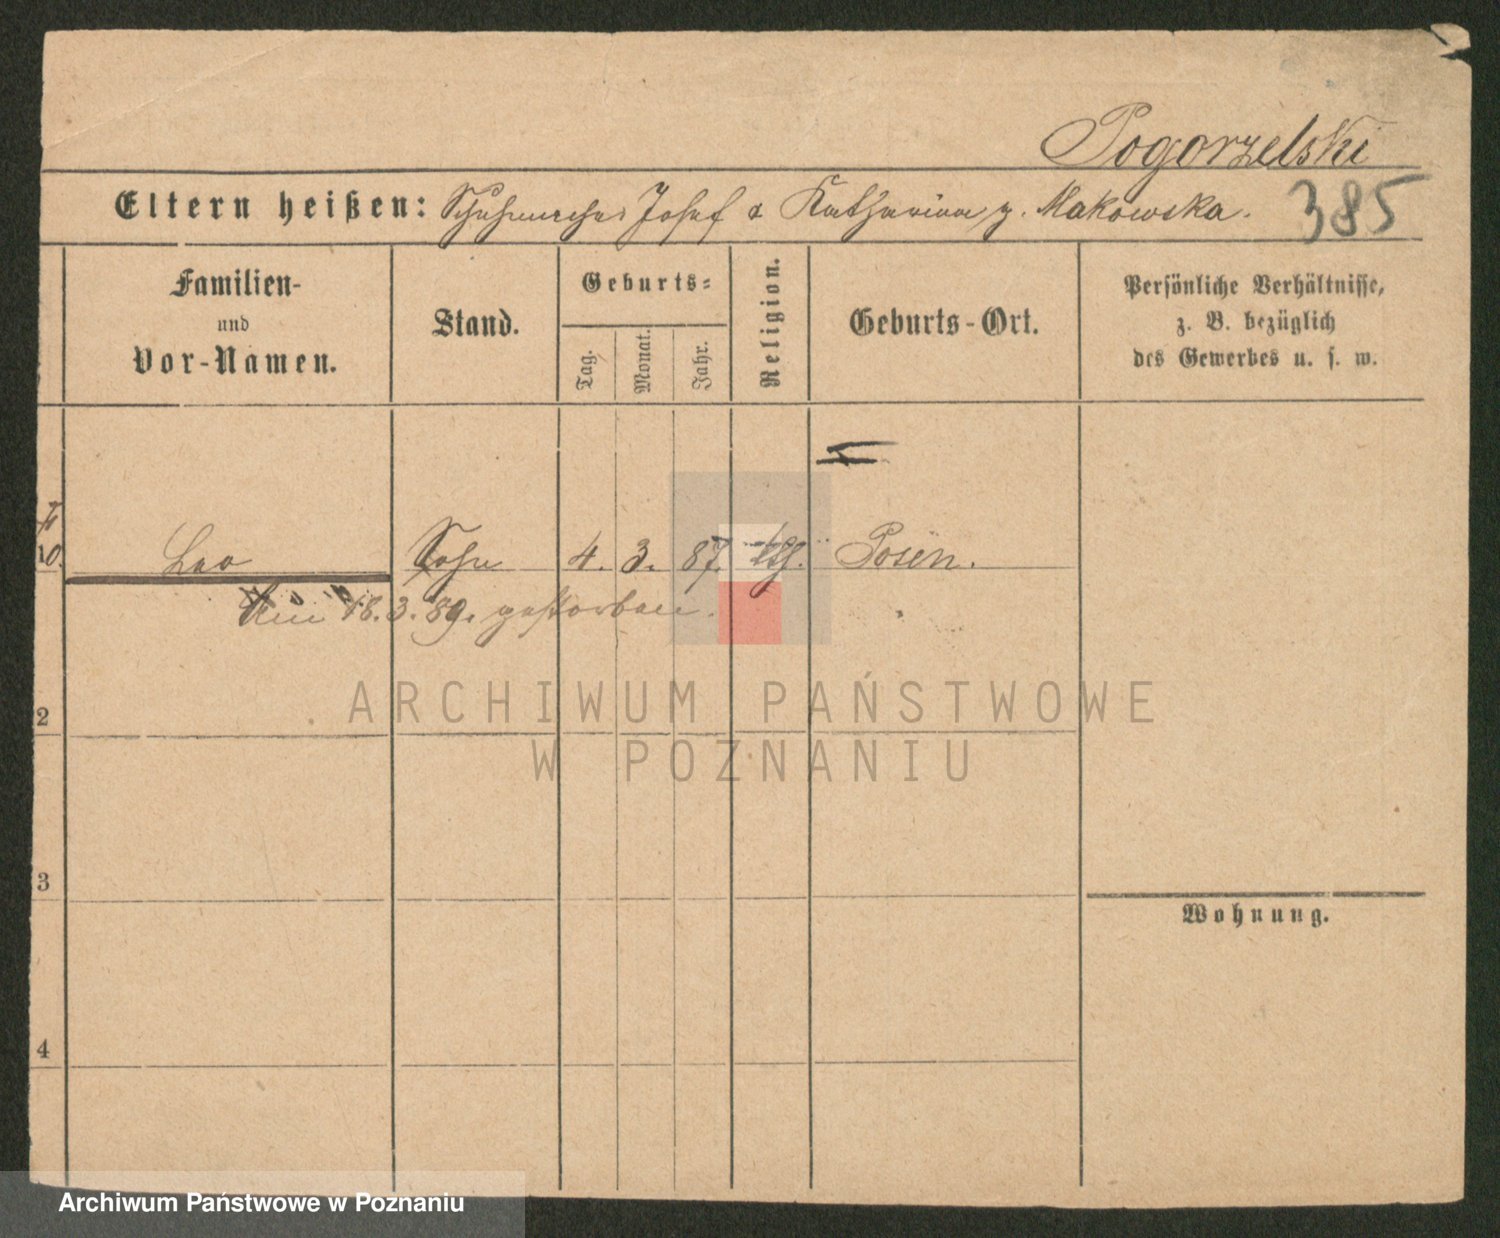 Pogorzelski
Eltern heißen: Schuhmacher Josef & Katharina g. Makowska.
385
Familien-
und
Vor-Namen.
Stand.
Geburts-
Tag.
Monat.
Jahr.
Religion.
Geburts-Ort.
Persönliche Verhältnisse,
z. B. bezüglich
des Gewerbes u. s. w.
10. Leo Sohn 4. 3. 87. kth. Posen.
Am 18.3.89. gestorben.
2
3
Wohnung.
4
ARCHIWUM PAŃSTWOWE
W POZNANIU
Archiwum Państwowe w Poznaniu